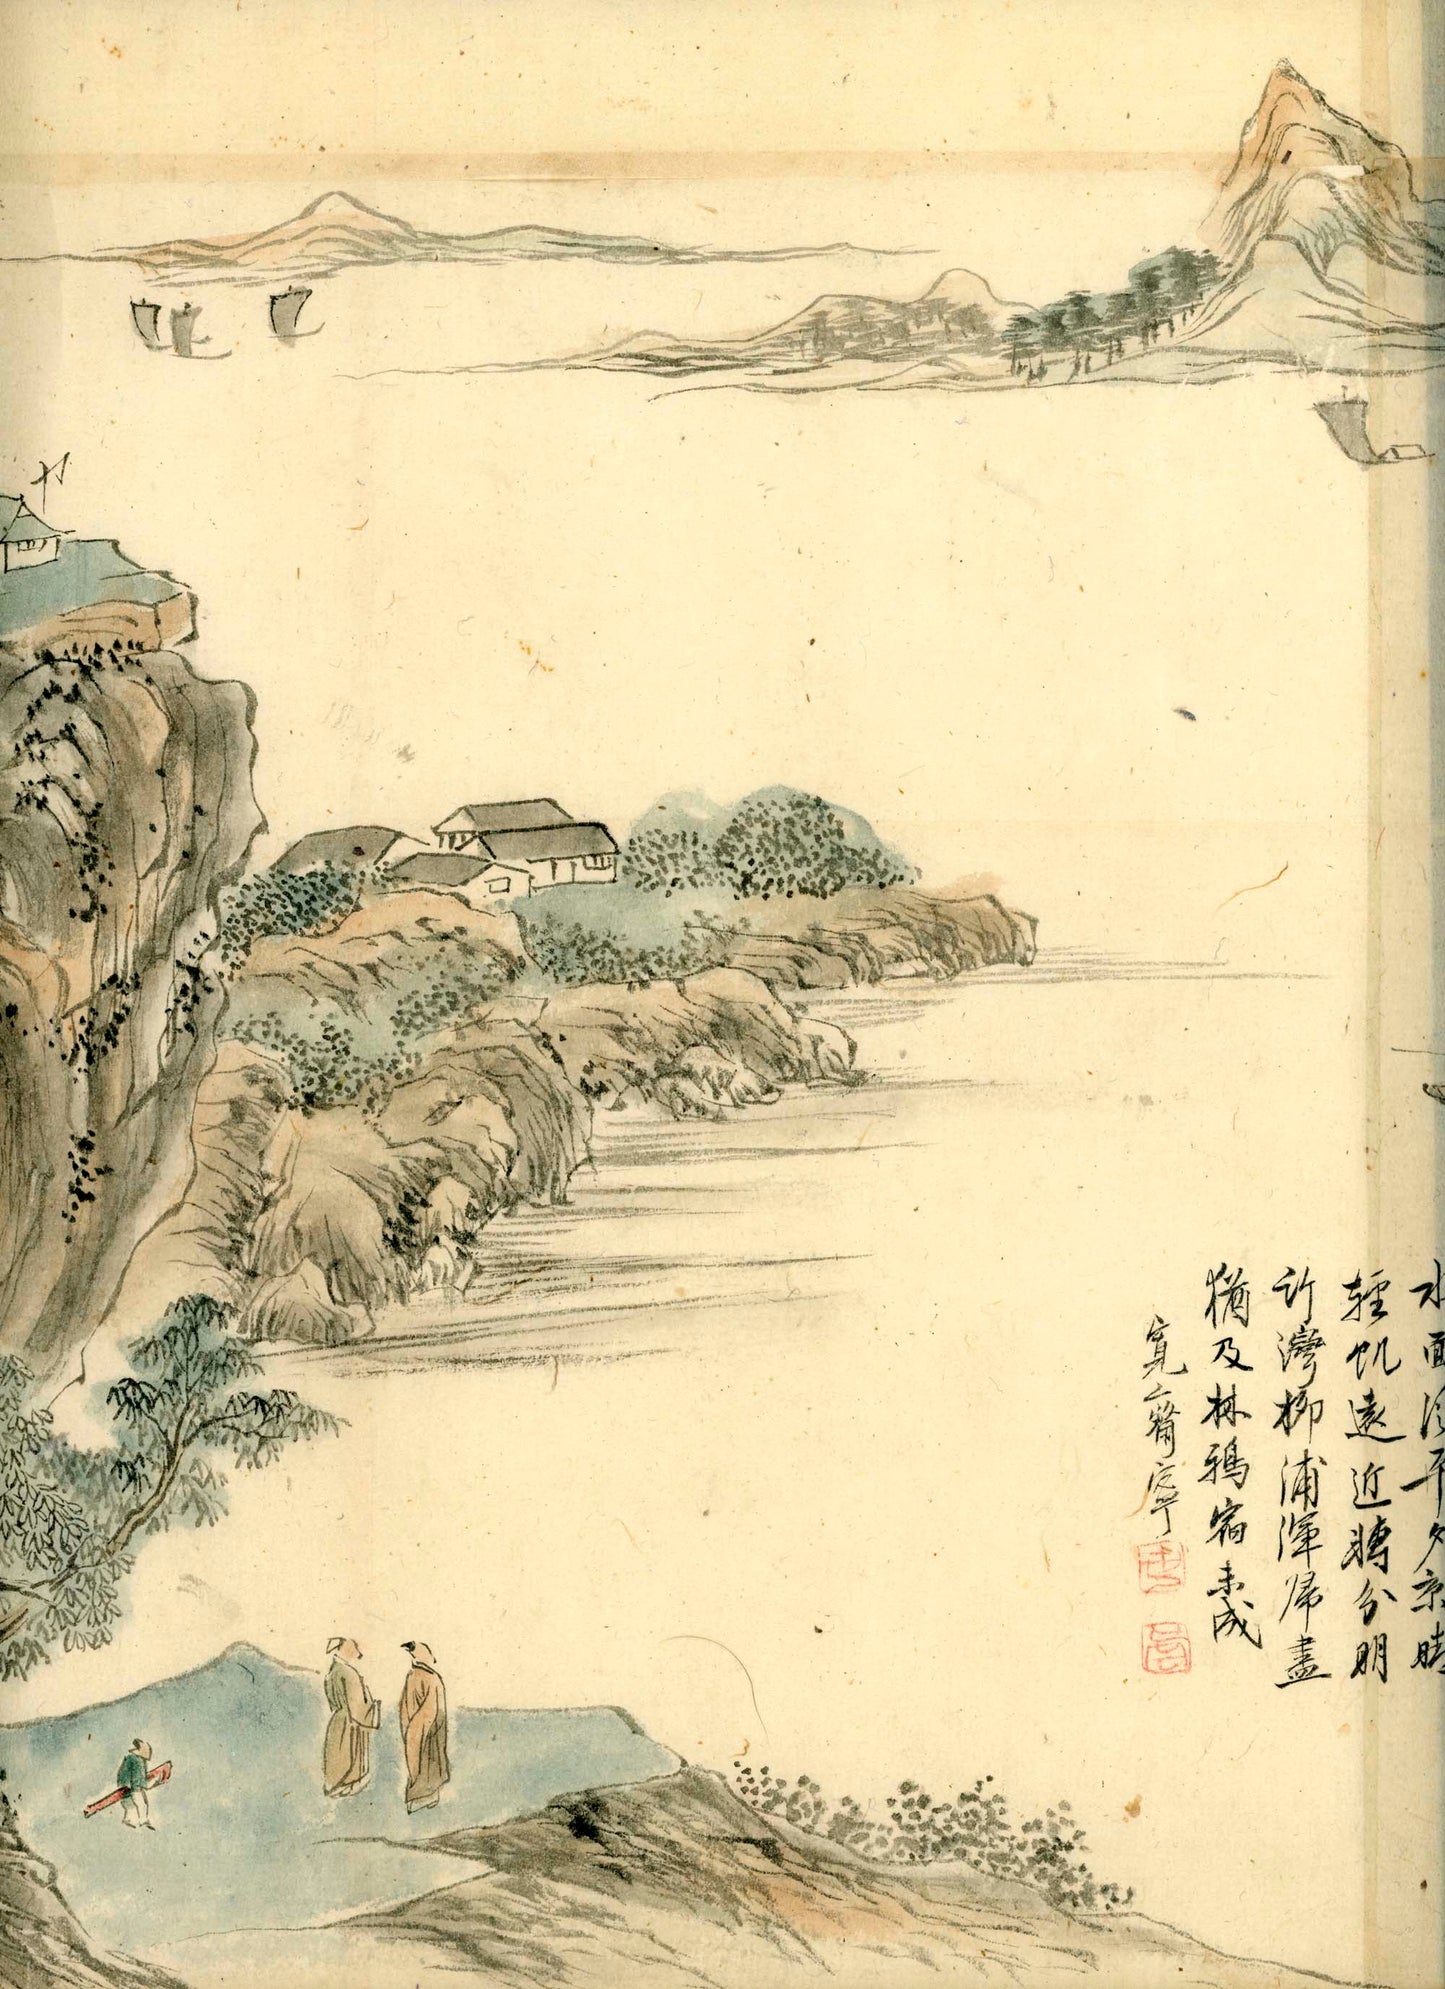 水面平夕景晴
輕帆遠近轉分明
竹灣柳浦渾歸盡
猶及林鴉宿未成
寬齋寧